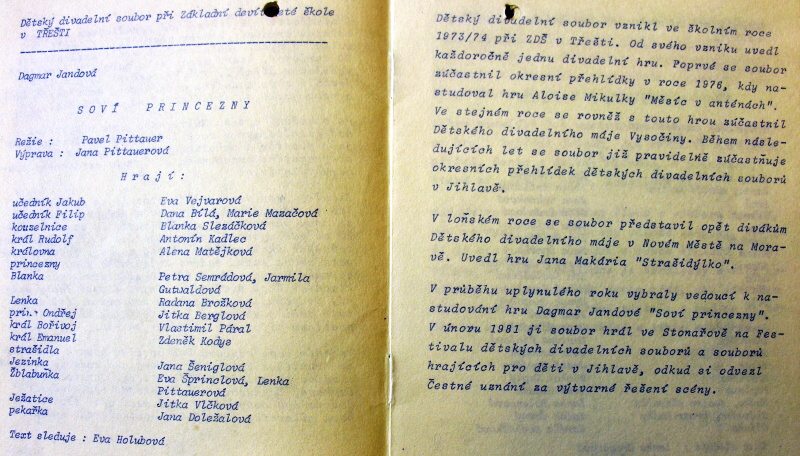 Dětský divadelní soubor při Základní devítileté škole
v TŘEŠTI
Dagmar Jandová
SOVÍ PRINCEZNY
Režie : Pavel Pittauer
Výprava : Jana Pittauerová
Hrají:
učedník Jakub Eva Vejvarová
učedník Filip Dana Bílá, Marie Mazačová
kouzelnice Blanka Slezáčková
král Rudolf Antonín Kadlec
královna Alena Matějková
princezny
Blanka Petra Semrádová, Jarmila
Gutvaldová
Lenka Radana Brožková
princ Ondřej Jitka Berglová
král Bořivoj Vlastimil Páral
král Emanuel Zdeněk Kodys
strašidla
Jezinka Jana Šeniglová
Žblabuňka Eva Šprinclová, Lenka
Pittauerová
Ježatice Jitka Vlčková
pekařka Jana Doležalová
Text sleduje : Eva Holubová
Dětský divadelní soubor vznikl ve školním roce
1973/74 při ZDŠ v Třešti. Od svého vzniku uvedl
každoročně jednu divadelní hru. Poprvé se soubor
zúčastnil okresní přehlídky v roce 1976, kdy na-
studoval hru Aloise Mikulky "Měsíc v anténách".
Ve stejném roce se rovněž s touto hrou zúčastnil
Dětského divadelního máje Vysočiny. Během násle-
dujících let se soubor již pravidelně zúčastňuje
okresních přehlídek dětských divadelních souborů
v Jihlavě.
V loňském roce se soubor představil opět divákům
Dětského divadelního máje v Novém Městě na Mora-
vě. Uvedl hru Jana Makária "Strašidýlko".
V průběhu uplynulého roku vybraly vedoucí k na-
studování hru Dagmar Jandové "Soví princezny".
V únovu 1981 ji soubor hrál ve Stonařově na Fes-
tivalu dětských divadelních souborů a souborů
hrajících pro děti v Jihlavě, odkud si odvezl
Čestné uznání za výtvarné řešení scény.